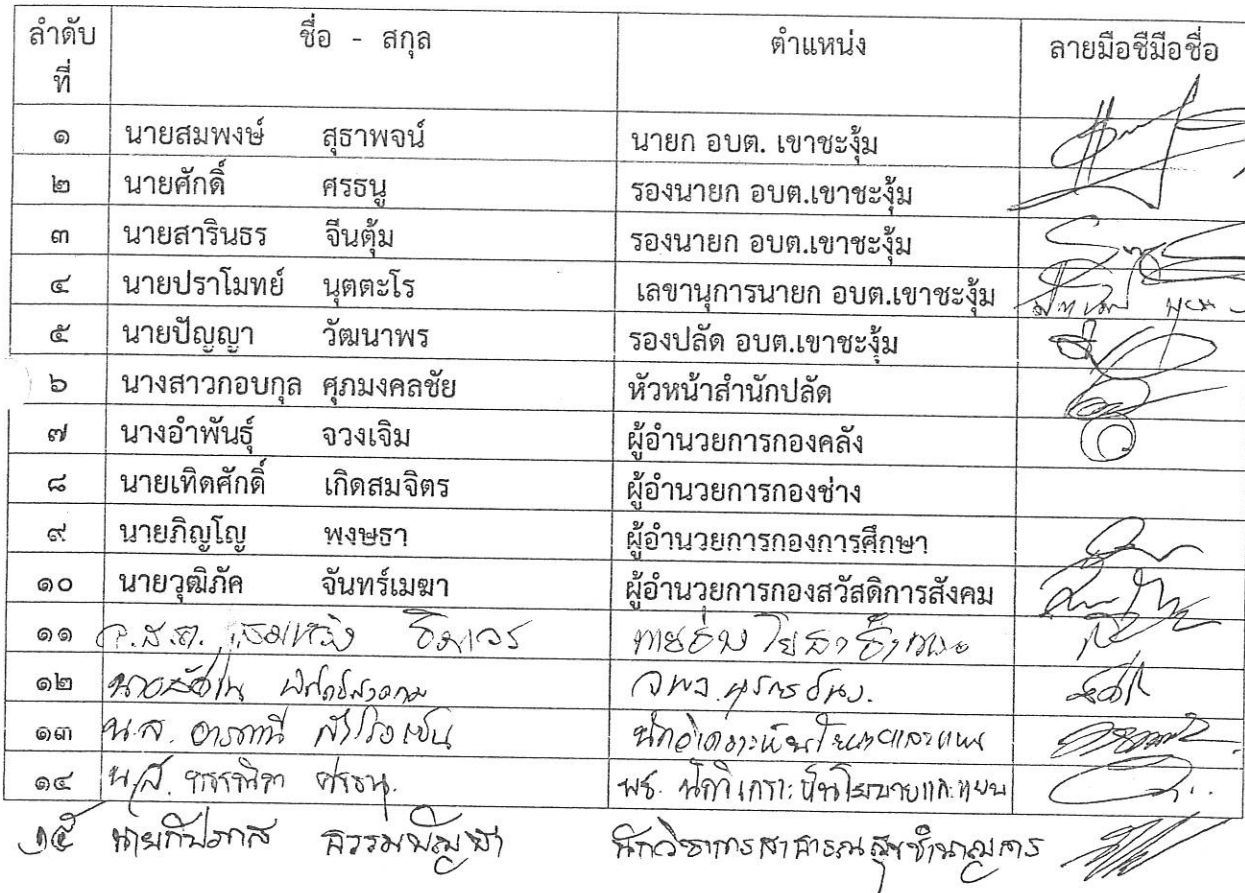 ลำดับที่ ชื่อ - สกุล ตำแหน่ง ลายมือชื่มือชื่อ
๑ นายสมพงษ์ สุธาพจน์ นายก อบต. เขาชะงุ้ม
๒ นายศักดิ์ ศรธนู รองนายก อบต.เขาชะงุ้ม
๓ นายสารินธร จีนตุ้ม รองนายก อบต.เขาชะงุ้ม
๔ นายปราโมทย์ นุตตะโร เลขานุการนายก อบต.เขาชะงุ้ม
๕ นายปัญญา วัฒนาพร รองปลัด อบต.เขาชะงุ้ม
๖ นางสาวกอบกุล ศุภมงคลชัย หัวหน้าสำนักปลัด
๗ นางอำพันธุ์ จวงเจิม ผู้อำนวยการกองคลัง
๘ นายเทิดศักดิ์ เกิดสมจิตร ผู้อำนวยการกองช่าง
๙ นายภิญโญ พงษธา ผู้อำนวยการกองการศึกษา
๑๐ นายวุฒิภัค จันทร์เมฆา ผู้อำนวยการกองสวัสดิการสังคม
๑๑ นายช่างโยธาชำนาญ
๑๒ จพง.ธุรการชนง.
๑๓ น.ส. นักวิเคราะห์นโยบายและแผน
๑๔ น.ส. ศรธนู. ผช. นักวิเคราะห์นโยบายและแผน
๑๕ นาย ธรรมปัญญา นักวิชาการสาธารณสุขชำนาญการ